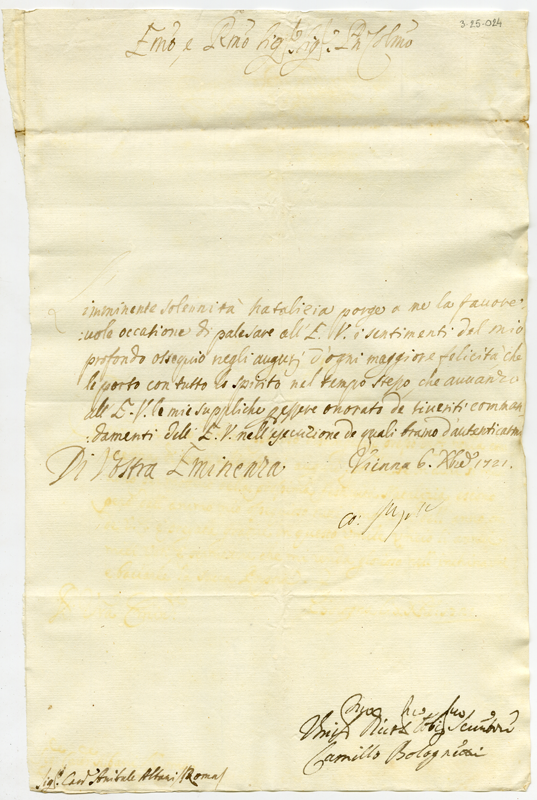 3-25-024
Emo, e Rmo Sig.re Sig.r Pn Colmo
imminente solennità natalizia porge a me la favore:
:vole occasione di palesare all'E. V. i sentimenti del mio
profondo ossequio negli augurj d'ogni maggiore felicità che
le porto con tutto lo spirito nel tempo stesso che avvanzo
all'E. V. le mie suppliche d'essere onorato de riveriti comman
:damenti dell'E. V. nell'esecuzione de quali bramo d'autenticarmi
Di Vostra Eminenza Vienna 6. Xbre 1721.
Camillo Bolognini
Sig.r Card. Anibale Albani Roma